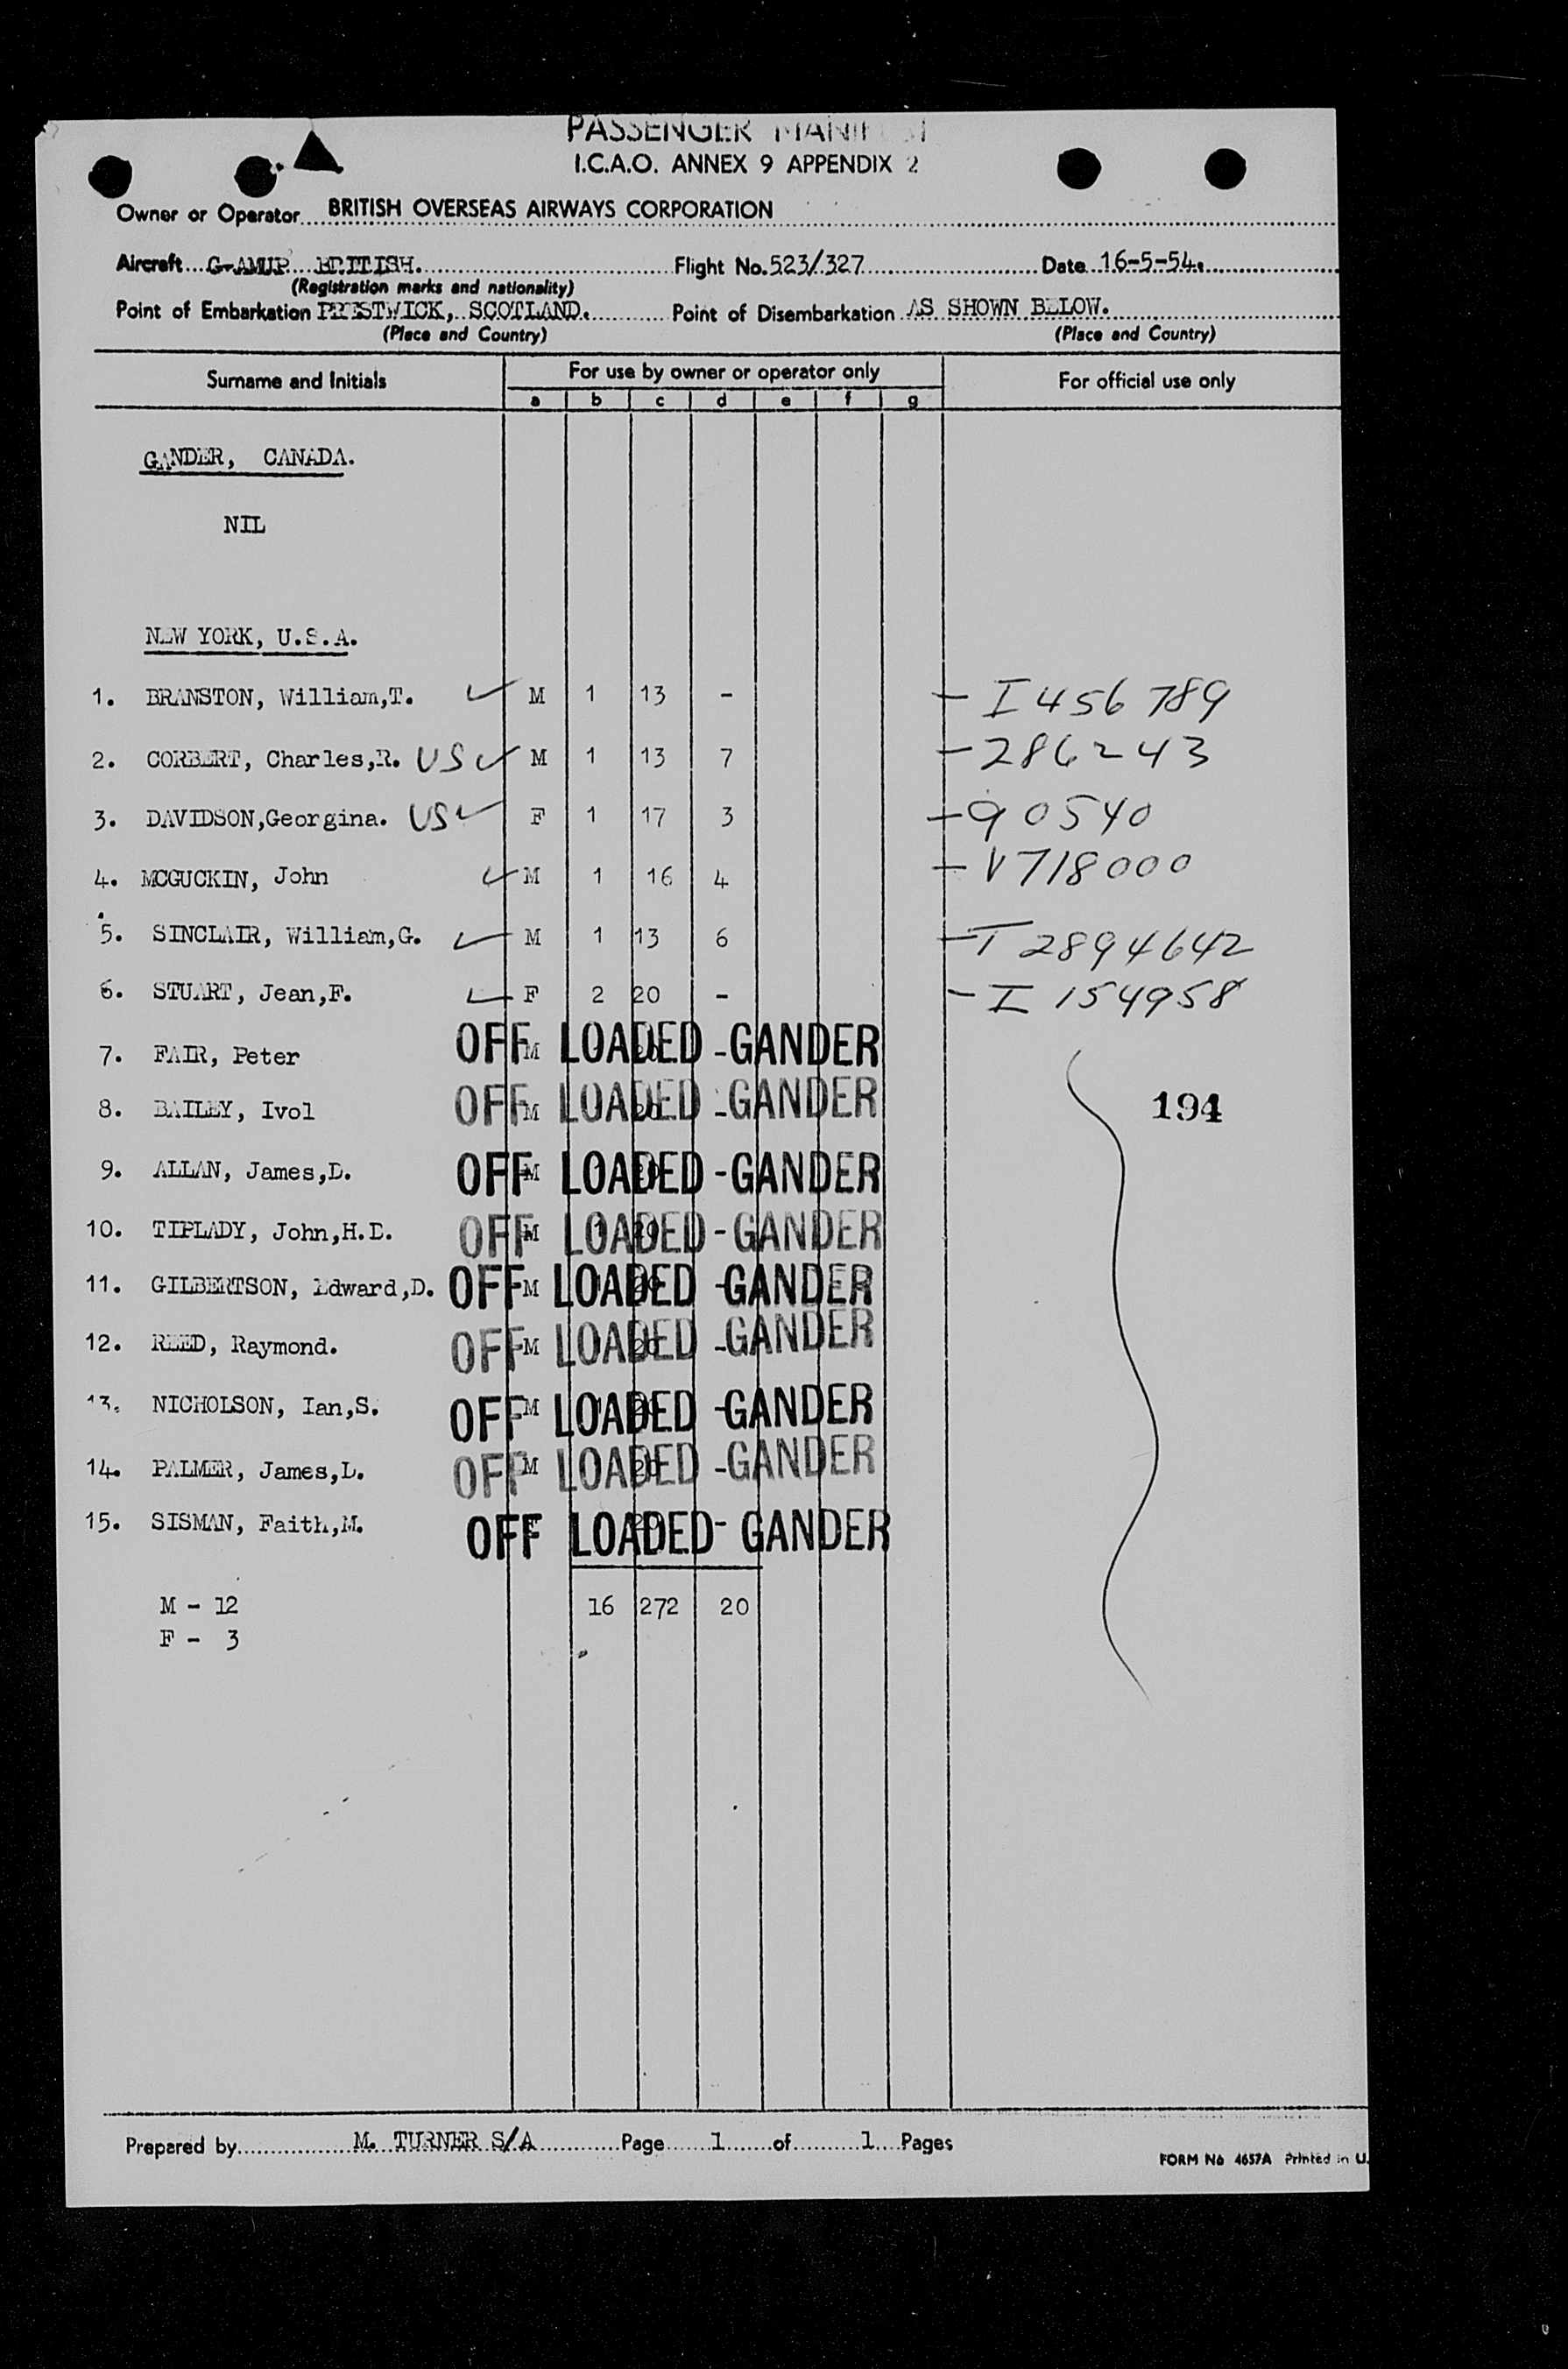 PASSENGER MANIFEST
I.C.A.O. ANNEX 9 APPENDIX 2
Owner or Operator BRITISH OVERSEAS AIRWAYS CORPORATION
Aircraft G-AMUP BRITISH. Flight No. 523/327 Date 16-5-54.
(Registration marks and nationality)
Point of Embarkation PRESTWICK, SCOTLAND. Point of Disembarkation AS SHOWN BELOW.
(Place and Country) (Place and Country)
Surname and Initials For use by owner or operator only For official use only
a b c d e f g
GANDER, CANADA.
NIL
NEW YORK, U.S.A.
1. BRANSTON, William,T. ✓ M 1 13 - - I 456 789
2. CORBERT, Charles,R. US ✓ M 1 13 7 - 286243
3. DAVIDSON,Georgina. US ✓ F 1 17 3 - 90540
4. MCGUCKIN, John ✓ M 1 16 4 - V718000
5. SINCLAIR, William,G. ✓ M 1 13 6 - I 2894642
6. STUART, Jean,F. ✓ F 2 20 - - I 154958
7. FAIR, Peter M OFF LOADED - GANDER
8. BAILEY, Ivol M OFF LOADED - GANDER 194
9. ALLAN, James,D. M OFF LOADED - GANDER
10. TIPLADY, John,H.D. M OFF LOADED - GANDER
11. GILBERTSON, Edward,D. M OFF LOADED - GANDER
12. REED, Raymond. M OFF LOADED - GANDER
13. NICHOLSON, Ian,S. M OFF LOADED - GANDER
14. PALMER, James,L. M OFF LOADED - GANDER
15. SISMAN, Faith,M. OFF LOADED - GANDER
M - 12 16 272 20
F - 3
Prepared by M. TURNER S/A Page 1 of 1 Pages
FORM No 4657A Printed in U.